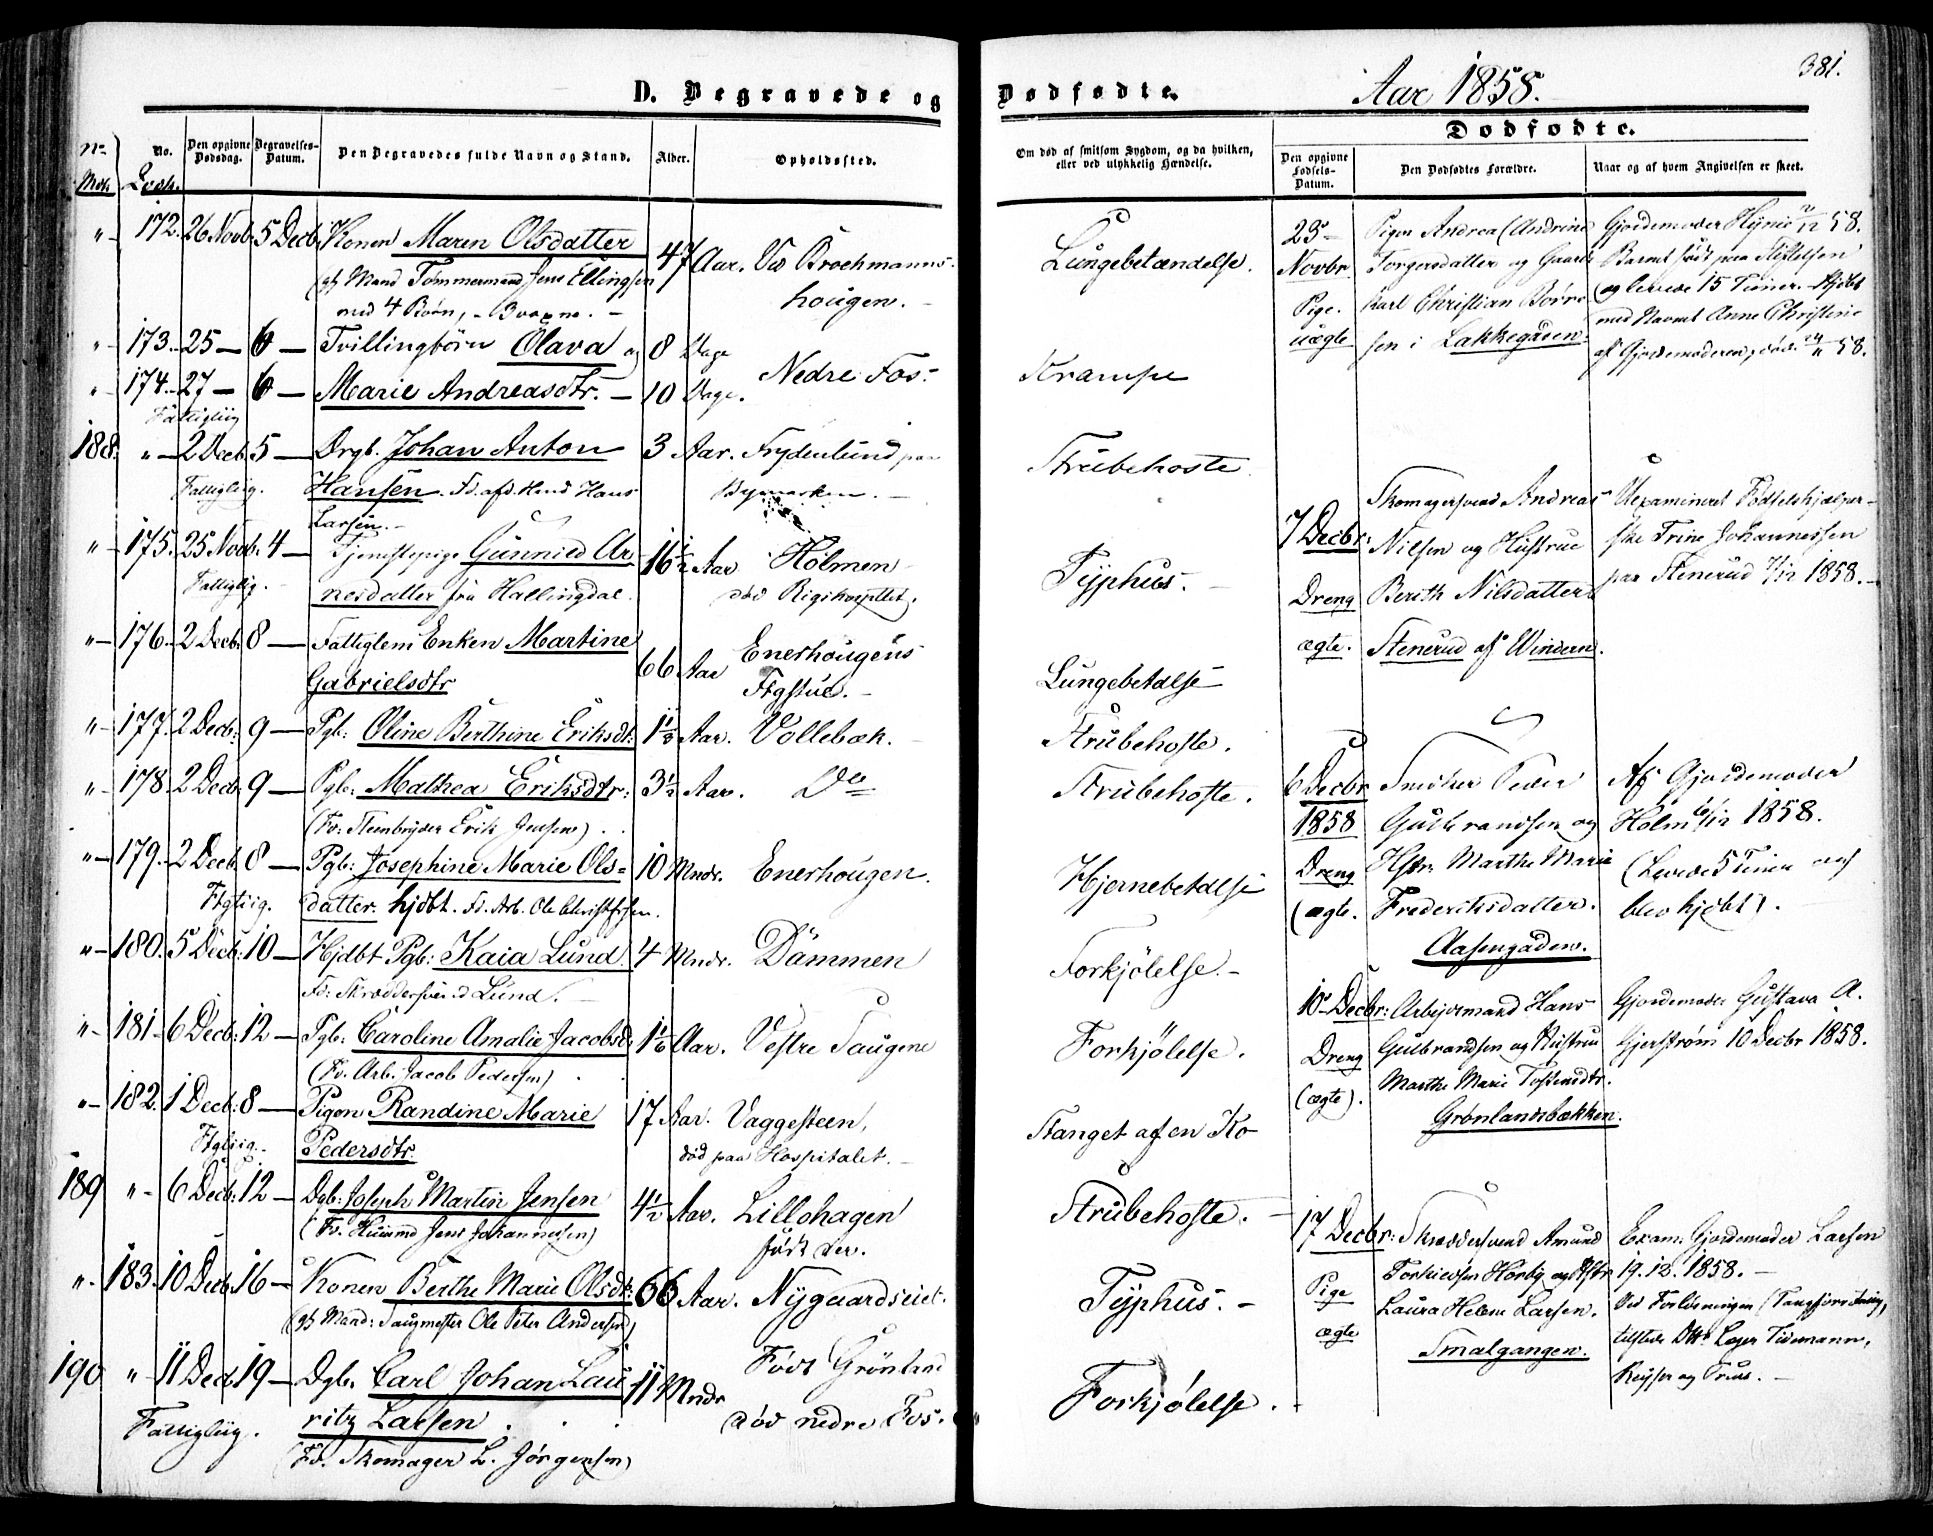 D. Begravede og
No. Mdk. No. Qvdk. Den opgivne Dødsdag. Begravelses-Datum. Den Begravedes fulde Navn og Stand. Alder. Opholdssted.
"- 172. 26 Novb. 5 Decb. Konen Maren Olsdatter 47 Aar. Ved Brochmanns-
(gf. Mand Tømmermand Jens Ellingsen hougen. -
med 4 Børn, - 3 voxne. -
"- 173. 25 — 6 — Tvillingbörn Olava og 8 Dage
"- 174. 27 — 6 — Marie Andreasdtr. — 10 Dage. Nedre Fos.
Fattigliig
188. "- 2 Decb. 5 — Drgb. Johan Anton 3 Aar. Frydenlund paa
Fattigliig. Hansen. Fd. afd. Hans Bymarken. -
Larsen. -
"- 175. 25 Novb. 4 — Tjenestepige Gunnild Ar- 16 1/2 Aar Holmen
Fattiglig. - nesdatter fra Hallingdal. død Rigshospitlet.
"- 176. 2 Decb. 8 — Fattiglem Enken Martine 66 Aar Enerhougens
Gabrielsdtr Ftgstue. -
"- 177. 2 Decb. 9 — Pgb. Oline Berthine Eriksdt: 1 1/2 Aar. Vollebæk. -
"- 178. 2 Decb. 9 — Pgb. Mathea Eriksdtr: 3 1/2 Aar. Do
(Fd. Steenbryder Erik Jensen) . .
"- 179. 2 Decb. 8 — Pgb: Josephine Marie Ols= 10 Mndr. Enerhougen.
Ftgliig. datter. hjdbt. Fd. Arb. Ole Christophersen.
"- 180. 5 Decb. 10 — Hjdbt Pgb: Kaia Lund. 4 Mndr. Dammen
Fd: Skræddersvend Lund. -
"- 181. 6 Decb: 12 — Pgb: Caroline Amalie Jacobsd. 1 1/6 Aar. Vestre Saugene
(Fd. Arb. Jacob Pedersen) . .
"- 182. 1 Decb: 8 — Pigen Randine Marie 17 Aar. Vaggesteen,
Ftgliig. - Pedersdtr. död paa Hospitalet. -
189 "- 6 Decb: 12 — Dgb: Joseph Martin Jensen 4 1/2 Aar. Lillohagen
(Fd. Huusmd Jens Johannesen) født der.
"- 183. 10 Decb. 16 — Konen Berthe Marie Olsdtr: 66 Aar. Nygaardseiet.
(gf. Mand: Saugmester Ole Peter Andersen)
190 "- 11 Decb. 19 — Dgb. Carl Johan Lau- 11 Mndr Født Grönland
Fattigliig. ritz Larsen . . . død nedre Fos.
(Fd. Skomager L. Jörgensen)
381.
Dødfødte. Aar 1858.
Dødfødte.
Om død af smitsom Sygdom, og da hvilken, eller ved ulykkelig Hændelse. Den opgivne Fødsels-Datum. Den Dødfødtes Forældre. Naar og af hvem Angivelsen er skeet.
Lungebetændelse.
Krampe
Strubehoste
Typhus. -
Lungebetdlse
Strubehoste.
Strubehoste.
Hjernebetdlse
Forkjölelse. -
Forkjølelse.
Stanget af en Ko
Strubehoste. -
Typhus. -
Forkjølelse.
23 Pigen Andrea (Andrine Gjordemoder 58.
Novbr. Torgersdatter og Barnet født paa Stiftelsen
Pige. Karl Christian Børre- og levede 15 Timer. - Hjdbt
uægte sen i Lakkegaden. med Navnet Anne Christine
af Gjordemoderen, død 58.
7 Decbr. Skomagersvend Andreas Uexamineret Fødselshjælper-
Dreng Nilsen og Hustrue ske Trine Johannessen
ægte. Berith Nilsdatter paa Stenerud 7/12 1858. -
Stenerud af Windern.
6 Decbr Snedker Peder Af Gjordemoder
1858 Gulbrandsen og Holm 6/12 1858.
Dreng Hstr: Marthe Marie (Levede 5 Timer og
(ægte. Frederiksdatter. blev hjdbt). -
Aasengaden.
10 Decbr: Arbejdsmand Hans Gjordemoder Gustava A.
Dreng Gulbrandsen og Hustrue Gjerström 10 Decbr 1858.
(ægte). Marthe Marie Tostensdtr.
Grønlandsbækken.
17 Decbr: Skræddersvend Amund Exam: Gjordemoder Larsen
Pige Horbÿ og Hstr 19. 12. 1858. -
ægte Laura Helene Larsen. Ved Forløsningen (Tangforretning,
Smalgangen. tilstede Læger Tidemann,